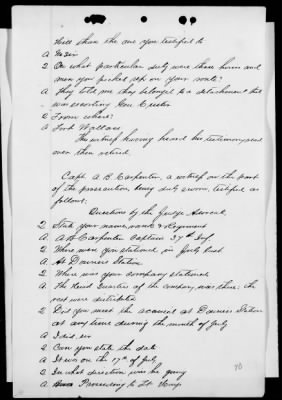 Hill than the one you testified to
A No sir
Q On what particular duty were these horses and
men you picked up on your route?
A They told me they belonged to a detachment that
was escorting Gen Custer
Q From where?
A Fort Wallace
The witness having heard his testimony read
over then retired.
Capt. A B. Carpenter, a witness on the part
of the prosecution being duly sworn, testified as
follows:
Questions by the Judge Advocate
Q State your name, rank & Regiment
A A B Carpenter Captain 37th Inf
Q Where were you stationed in July last
A At Downers Station
Q Where was your company stationed
A The Head Quarters of the company was there; the
rest were distributed
Q Did you meet the accused at Downers Station
at any time during the month of July
A I did, sir
Q Can you state the date
A It was on the 17th of July
Q In what direction was he going
A Proceeding to Ft Hays
70